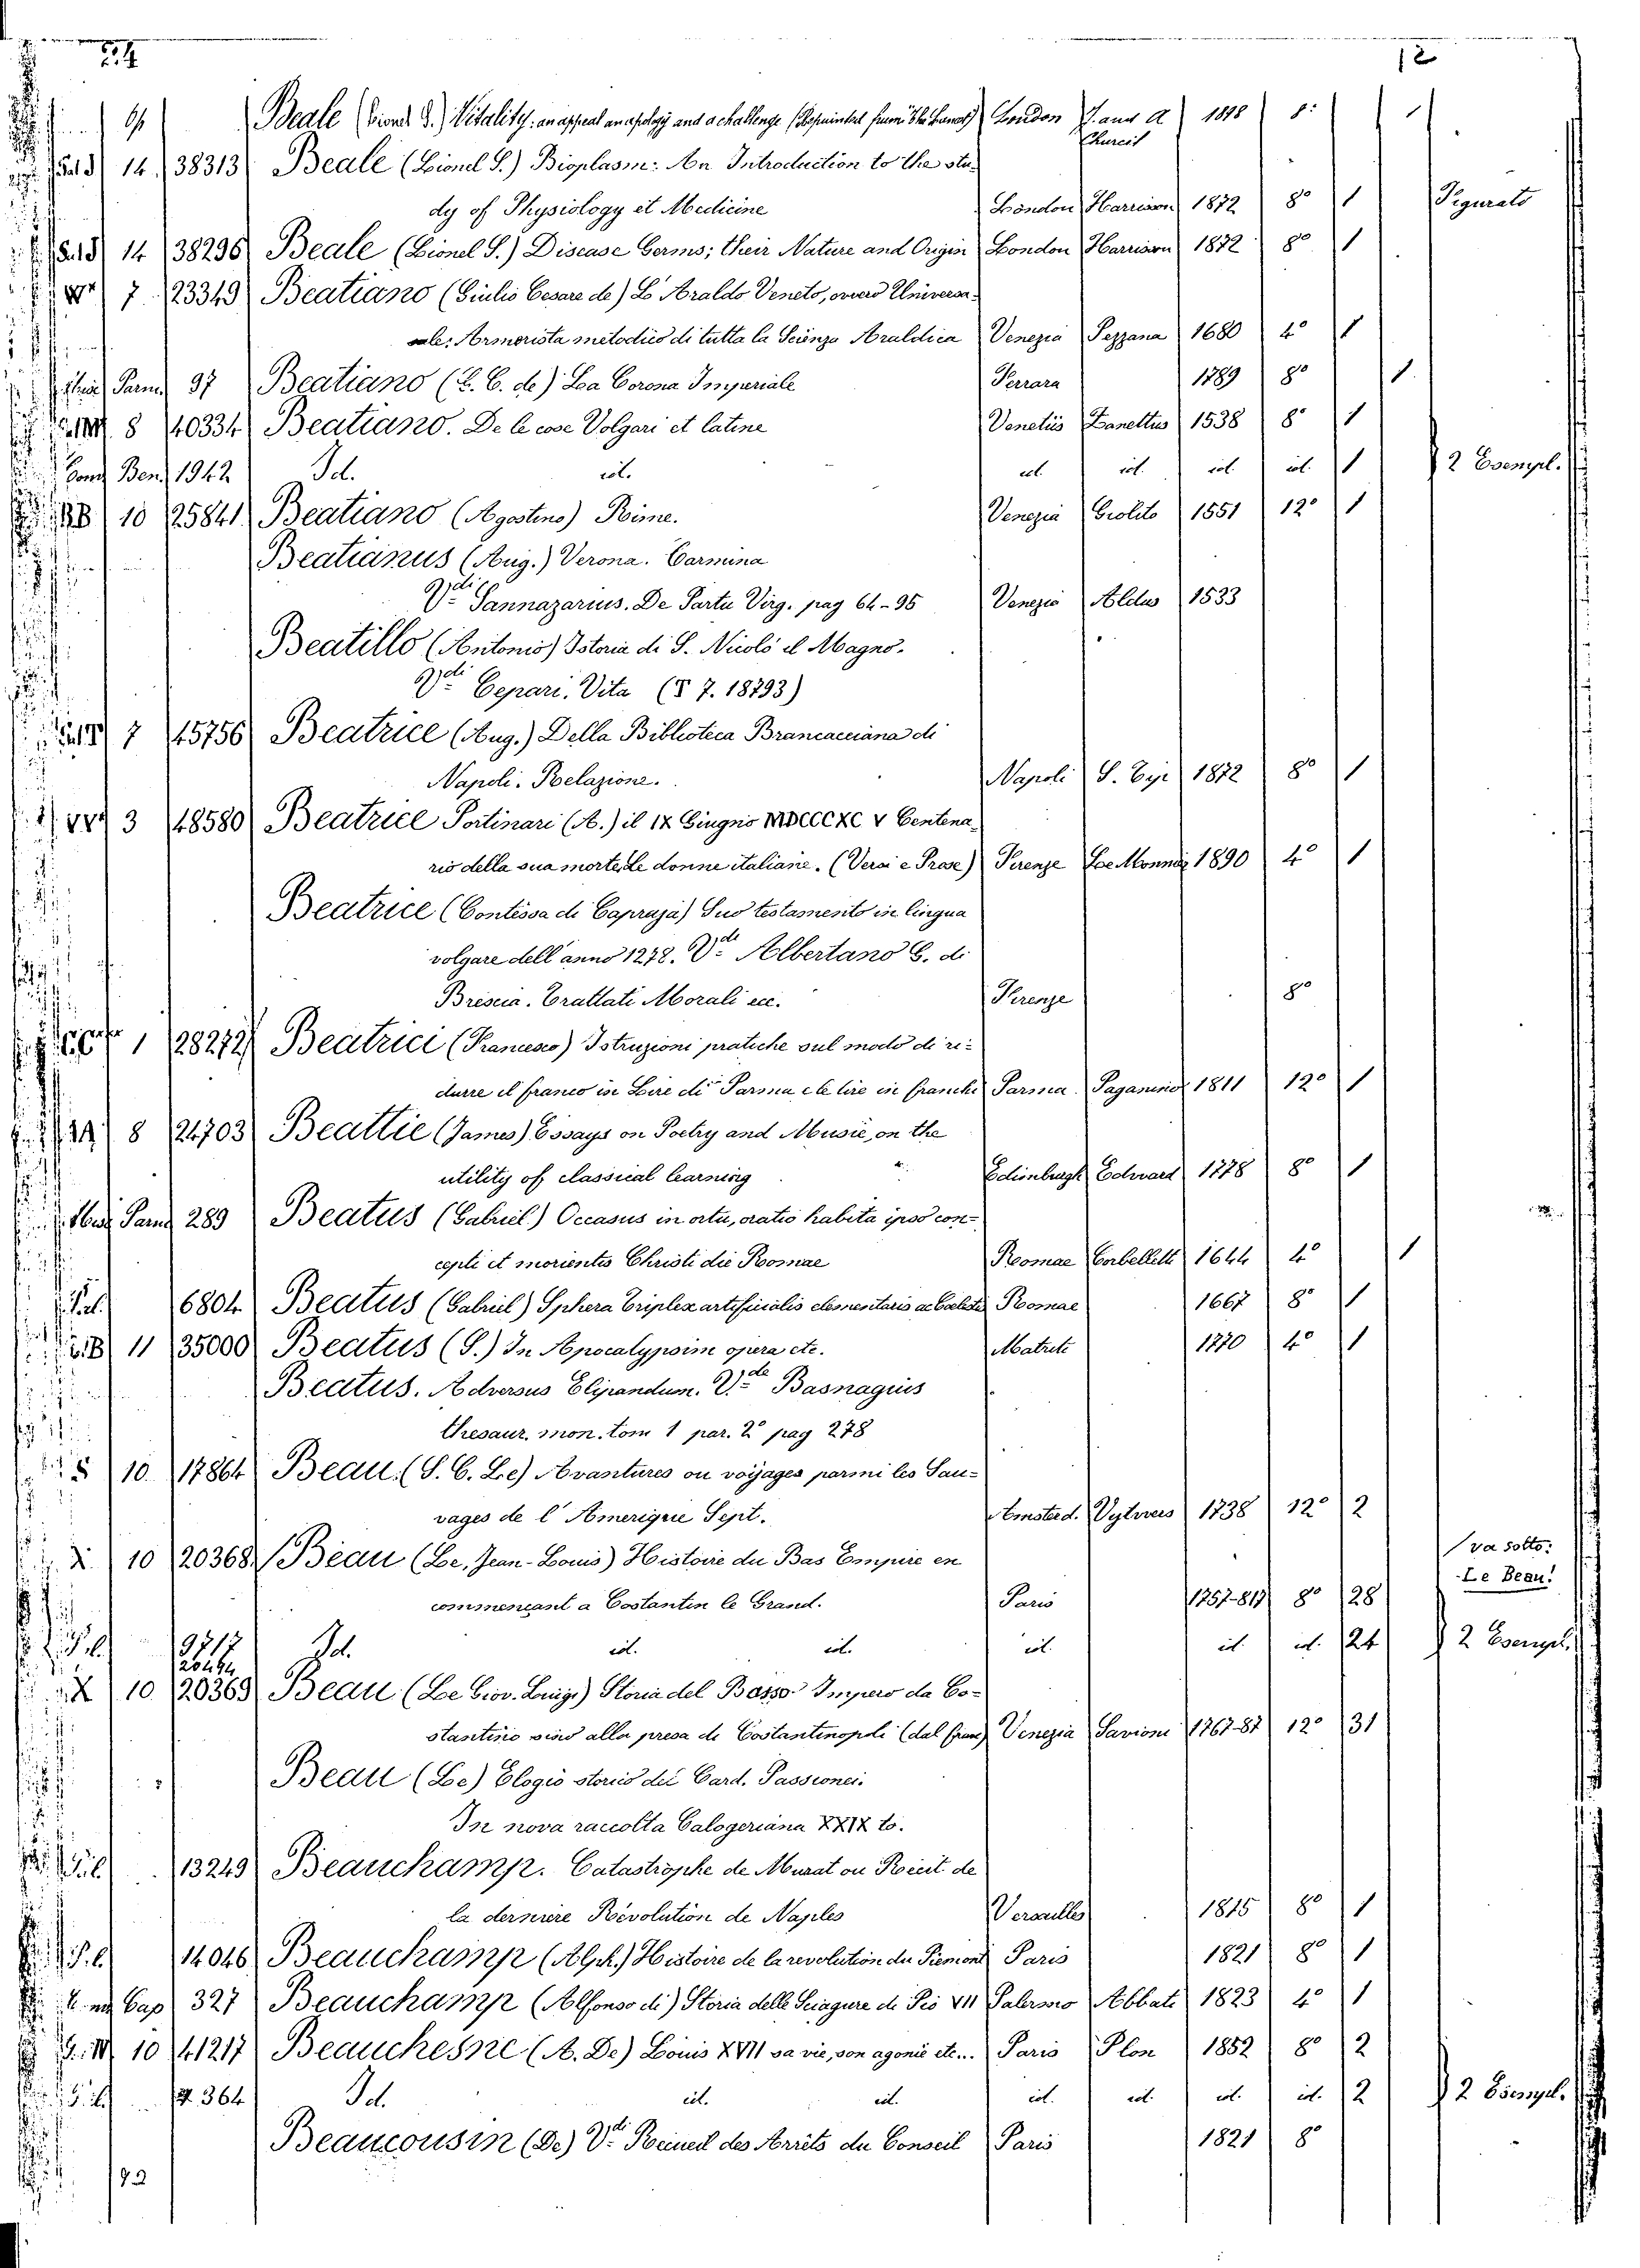 24 12
Beale (Lionel S.) Vitality: an appeal an apology and a challenge London J. and A 1898 8: 1
Churcil
14 38313 Beale (Lionel S.) Bioplasm: An Introduction to the stu-
dy of Physiology et Medicine London Harrison 1872 8° 1 Figurato
14 38296 Beale (Lionel S.) Disease Germs; their Nature and Origin London Harrison 1872 8° 1
7 23349 Beatiano (Giulio Cesare de) L'Araldo Veneto, ovvero Universa-
le Armerista metodico di tutta la Scienza Araldica Venezia Pezzana 1680 4° 1
Parm 97 Beatiano (G. C. de) La Corona Imperiale Ferrara 1789 8° 1
8 40334 Beatiano. De le cose Volgari et latine Venetiis Zanettus 1538 8° 1
Fond Ben 1942 Id. id. id. id. id. id. 1 2 Esempl.
10 25841 Beatiano (Agostino) Rime. Venezia Giolito 1551 12° 1
Beatianus (Aug.) Verona. Carmina
Vdi Sannazarius. De Partu Virg. pag 64-95 Venezia Aldus 1533
Beatillo (Antonio) Istoria di S. Nicolò il Magno.
Vdi Cepari. Vita (§ 7. 18793)
7 45756 Beatrice (Aug.) Della Biblioteca Brancacciana di
Napoli. Relazione. Napoli S. Eyi 1872 8° 1
3 48580 Beatrice Portinari (A.) il IX Giugno MDCCCXC V Centena-
rio della sua morte, le donne italiane. (Versi e Prose) Firenze Le Monnier 1890 4° 1
Beatrice (Contessa di Capraja) Suo testamento in lingua
volgare dell'anno 1278. Vde Albertano G. di
Brescia. Trattati Morali ecc. Firenze 8°
1 28272 Beatrici (Francesco) Istruzioni pratiche sul modo di ri-
durre il franco in Lire di Parma e le lire in franchi Parma Paganino 1811 12° 1
8 24703 Beattie (James) Essays on Poetry and Music, on the
utility of classical learning Edinburgh Edward 1778 8° 1
Parm 289 Beatus (Gabriel) Occasus in ortu, oratio habita ipso con-
cepti et morientis Christi die Romae Romae Corbelletti 1644 4° 1
6804 Beatus (Gabriel) Sphera triplex artificialis elementaris ac caelestis Romae 1667 8° 1
11 35000 Beatus (S.) In Apocalypsim opera etc. Matriti 1770 4° 1
Beatus. Adversus Elipandum. Vde Basnagius
thesaur. mon. tom 1 par. 2° pag 278
5 10. 17864 Beau. (S. C. Le) Avantures ou voyages parmi les Sau-
vages de l'Amerique Sept. Amsterd. Uytwers 1738 12° 2
10 20368 Beau (Le, Jean-Louis) Histoire du Bas Empire en va sotto:
commencant a Costantin le Grand. Paris 1757-817 8° 28 Le Beau!
Id. id. id. id. id. id. 24 2 Esempl.
10. 20369 Beau (Le Giov. Luigi) Storia del Basso Impero da Co-
stantino sino alla presa di Costantinopoli (dal franc) Venezia Savioni 1767-87 12° 31
Beau (Le) Elogio storico del Card. Passionei.
In nova raccolta Calogeriana XXIX to.
13249 Beauchamp. Catastrophe de Murat ou Recit de
la derniere Révolution de Naples Versailles 1815 8° 1
14046 Beauchamp (Alph.) Histoire de la revolution du Piemont Paris 1821 8° 1
Cap 327 Beauchamp (Alfonso di) Storia delle Sciagure di Pio VII Palermo Abbate 1823 4° 1
10 41217 Beauchesne (A. De) Louis XVII sa vie, son agonie etc... Paris Plon 1852 8° 2
364 Id. id. id. id. id. id. id. 2 2 Esempl.
Beaucousin (De) Vdi Recueil des Arrèts du Conseil Paris 1821 8°